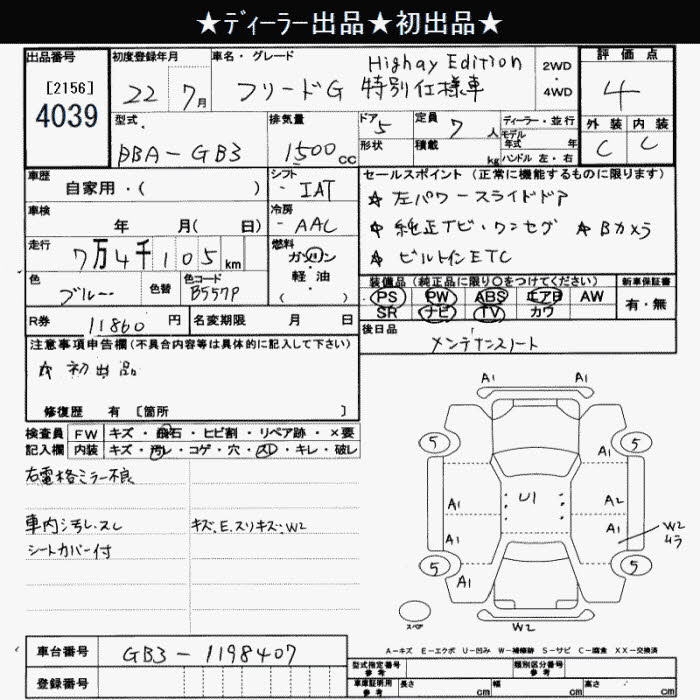 ★ディーラー出品★初出品★
出品番号
[2156]
4039
初度登録年月
22 7月
車名・グレード
フリードG Highay Edition
特別仕様車
2WD
・
4WD
評価点
4
外装 内装
C C
型式
DBA-GB3
排気量
1500cc
ドア
5
形状
定員
7人
積載
kg
ディーラー・並行
モデル
年式 年
ハンドル 左・右
車歴
自家用・( )
シフト
・IAT
車検
年 月( 日)
冷房
・AAC
走行
7万4千105km
燃料
ガソリン
軽・油
( )
色
ブルー
色替
色コード
B557P
R券
11860円
名変期限 月 日
セールスポイント(正常に機能するものに限ります)
☆左パワースライドドア
☆純正TV・ワンセグ ☆Bカメラ
☆ビルトインETC
装備品(純正品に限り○をつけてください)
PS PW ABS エアB AW
SR ナビ TV カワ
新車保証書
有・無
後日品
メンテナンスノート
注意事項申告欄(不具合内容等は具体的に記入して下さい)
☆初出品
修復歴 有 [箇所 ]
検査員 FW キズ・飛石・ヒビ割・リペア跡・×要
記入欄 内装 キズ・汚レ・コゲ・穴・スレ・キレ・破レ
右電格ミラー不良
車内汚レ.スレ キズ.E.スリキズ.W2
シートカバー付
A1 A1
5 5
A1
U1
A1 A2
A1 A1
W2
ムラ
5 5
A1
スペア
W2
A-キズ E-エクボ U-凹み W-補修跡 S-サビ C-腐食 XX-交換済
車台番号
GB3-1198407
登録番号
型式指定番号
参考
類別区分番号
参考
車庫証明用
参考
長さ cm 幅 cm 高さ cm